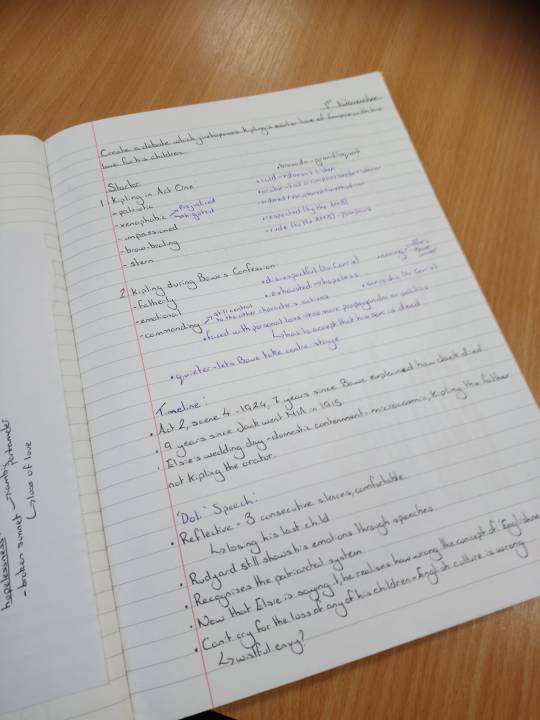 1st November
Create a debate which juxtaposes Kipling's love of Empire with his
love for his children.
Starter
1. Kipling in Act One
- patriotic
- xenophobic → prejudiced
→ bigoted
- impassioned
- brow-beating
- stern
• bravado - grandiloquent
• cold → doesn't listen
• orator
• respected (by the
• rude (by the
2. Kipling during Bowe's Confession
- fatherly
- emotional
- commanding → still central
to the other characters actions
• disrespectful (to Carrie)
• exhausted → hopeless
• caring → offers
Bowe
• sarcastic (to Carrie)
• faced with personal loss → no more propaganda or politics
↳ has to accept that his son is dead
• quieter - lets Bowe take centre-stage
Timeline:
• Act 2, scene 4 - 1924, 7 years since Bowe explained how Jack died.
• 9 years since Jack went MIA in 1915.
• Elsie's wedding day - domestic contentment, microcosmic, Kipling the father
not Kipling the orator.
'Dot' Speech:
• Reflective - 3 consecutive silences, comfortable
↳ losing his last child
• Rudyard still shows his emotions through speeches
• Recognises the patriarchal system
• Now that Elsie is saying it, he realises how wrong the concept of 'Englishness
• Can't cry for the loss of any of his children - English culture is wrong
↳ wistful envy?
hopelessness:
- broken sonnet → iambic
pentameter
↳ loss of love